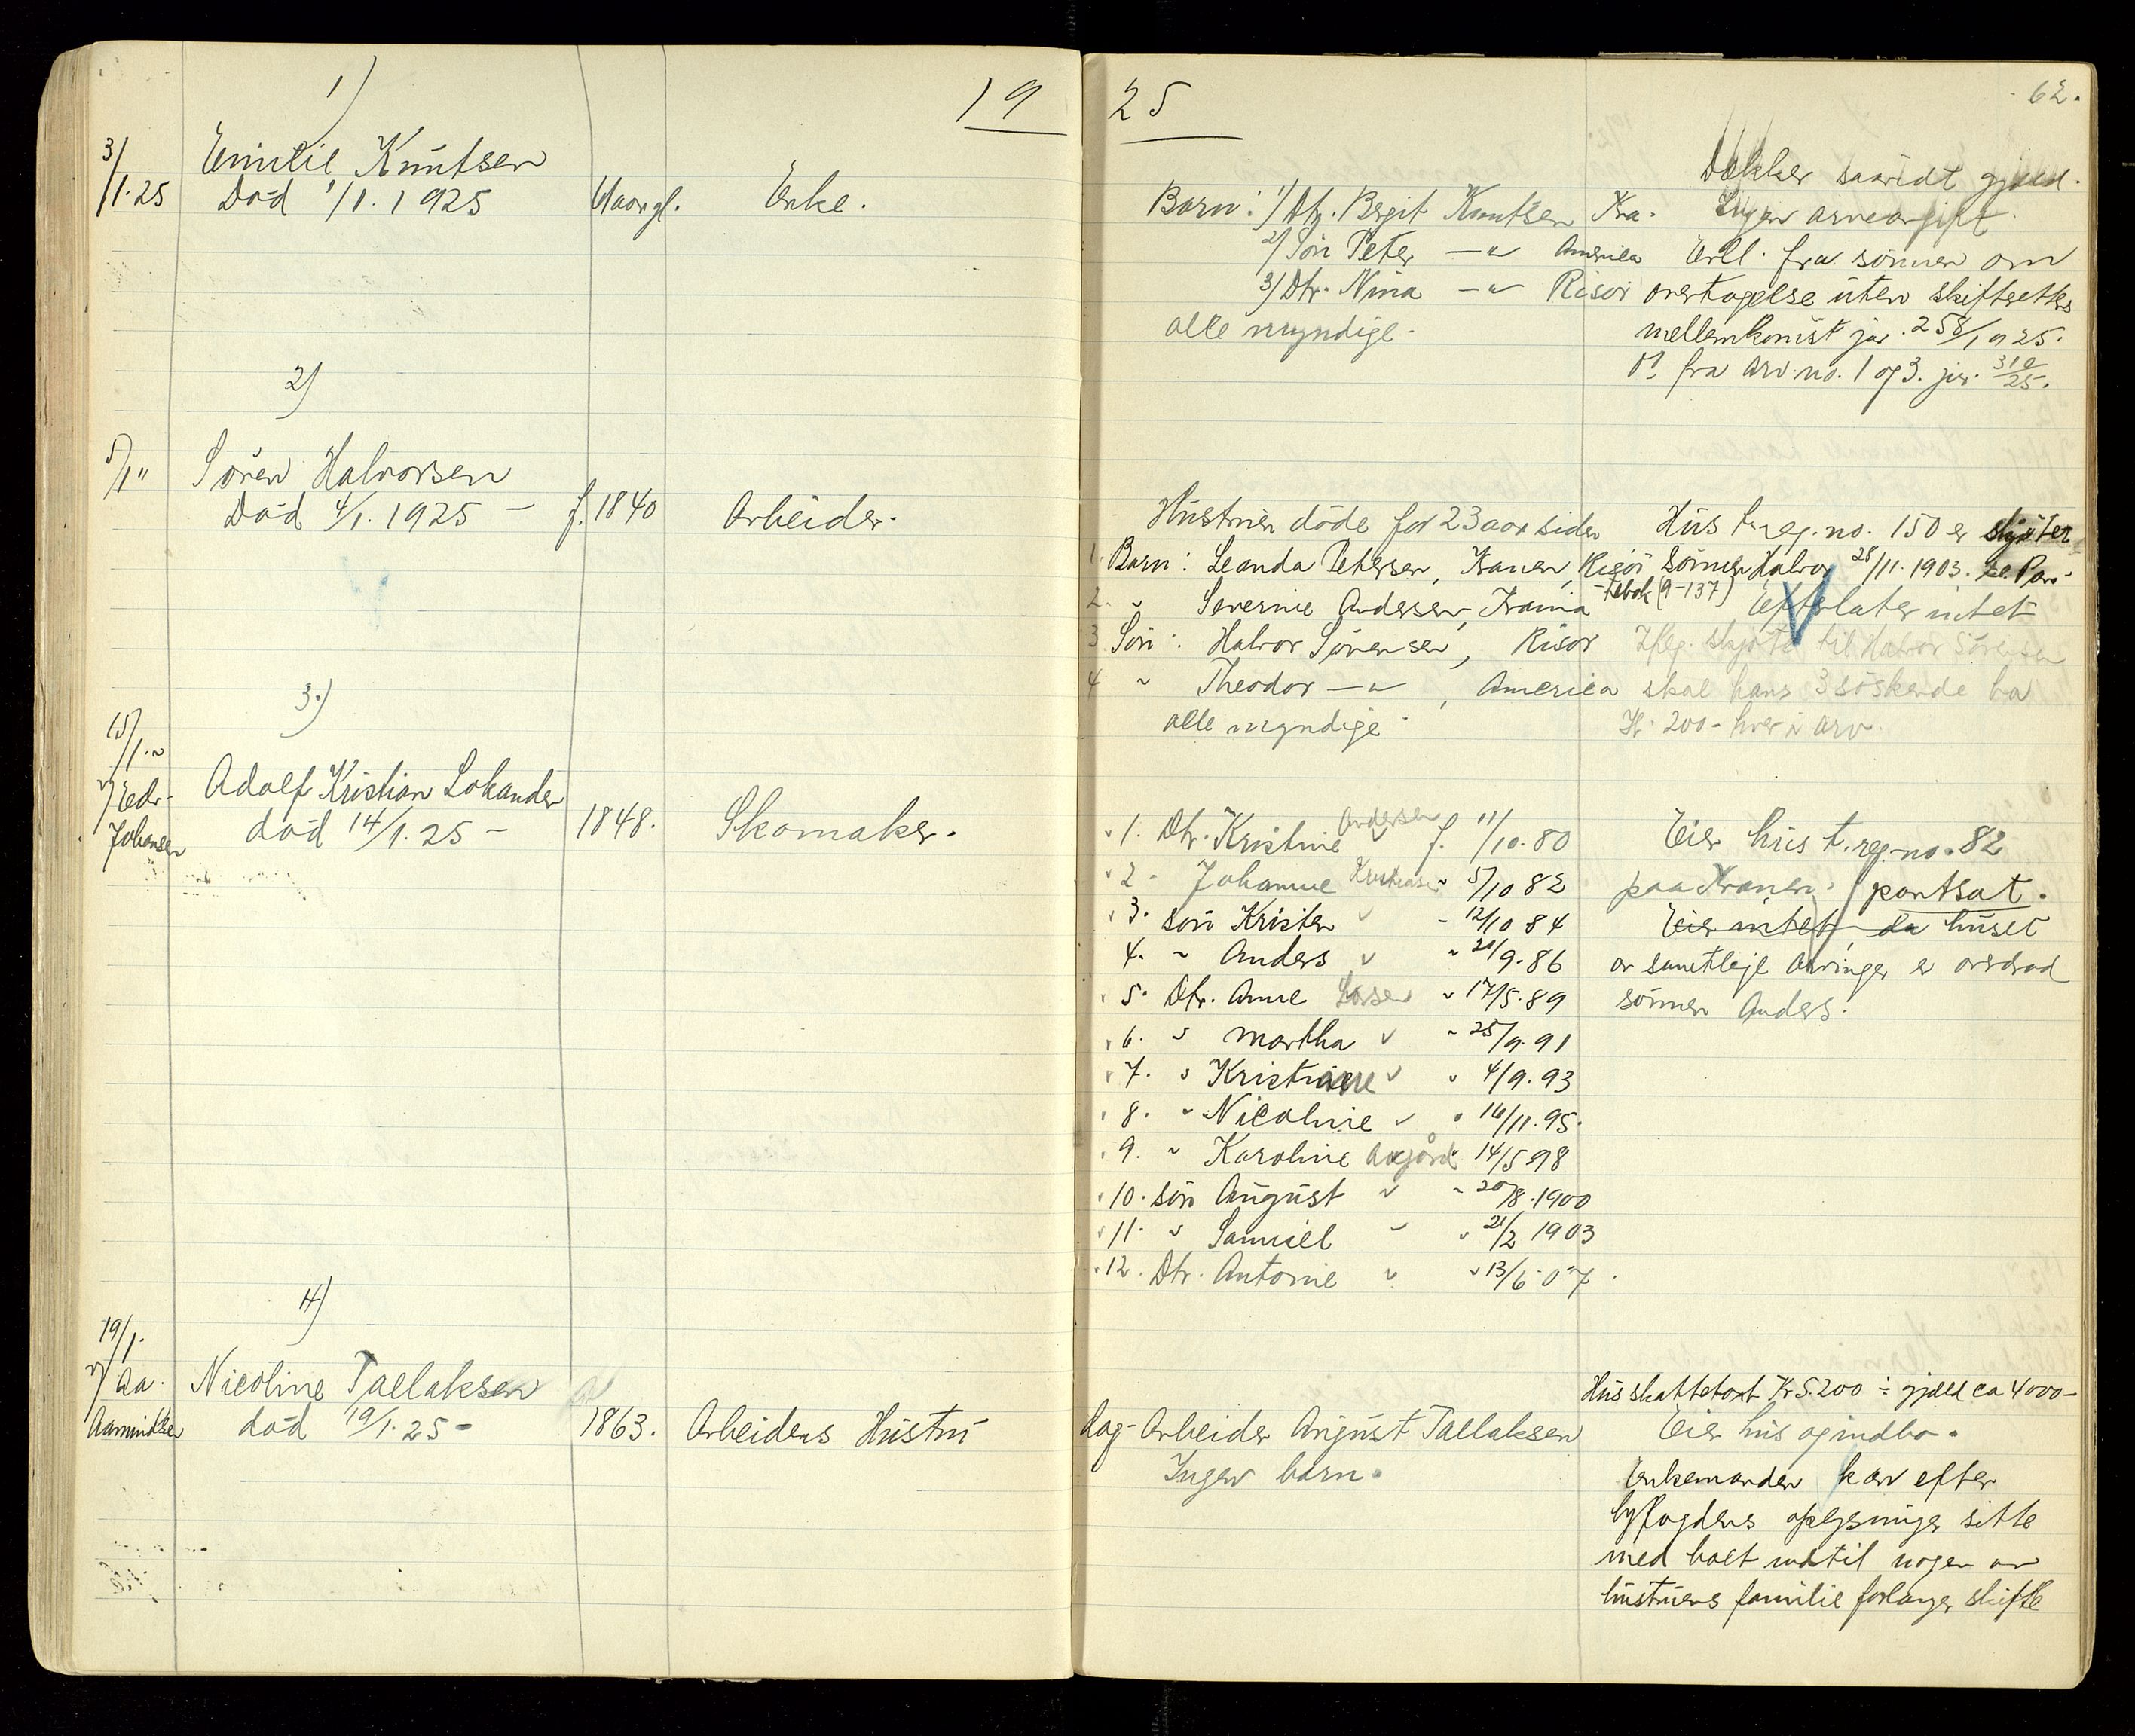 19 25
62.
1)
3/1.25 Emilie Knutsen
Död 1/1. 1925 61 aargl. Enke.
Barn: 1) Dtr. Bergit Knutsen Kra.
2) Sön Peter —"— America
3) Dtr. Nina —"— Risör
alle myndige.
Dækker saavidt gjæld.
Ingen arveavgift.
Erkl. fra sönnen om
overtagelse uten skifterettens
mellemkomst jnr. 258/1925.
Do fra arv. no. 1 og 3. jnr. 310/25.
2)
5/1 " Sören Halvorsen
Död 4/1. 1925 — f. 1840 Arbeider.
Hustruen döde for 23 aar siden
1. Barn: Leanda Petersen, Kranen, Risör
2. " Severine Andersen, Kranen
3 Sön: Halvor Sörensen, Risör
4 " Theodor —"—, America
alle myndige.
Hus t.reg.no. 150 er skjötet
sönnen Halvor 28/11. 1903. se Pan-
tebok (9-137)
Efterlater intet
Iflg. skjöte til Halvor Sörensen
skal hans 3 söskende ha
Kr. 200- hver i arv.
3.)
15/1."
v/ Edv.
Johansen
Adolf Kristian Lokander
död 14/1. 25 — 1848. Skomaker.
1. Dtr. Kristine Andersen f. 11/10. 80
2 " Johanne Kristiansen " 5/10 82
3. sön Kristen " - 12/10 84
4. " Anders " " 20/9. 86
5. Dtr. Anne Larsen " 17/5. 89
6. " Martha " " 25/9. 91
7. " Kristiane " " 4/9. 93
8. " Nicoline " " 16/11. 95.
9. " Karoline Axgård " 14/5 98
10. sön August " " 20/8. 1900
11. " Samuel " " 21/2 1903
12. Dtr. Antonie " " 13/6 07.
Eier hus t.reg.no. 82
paa Kranen. pantsat.
Eier intet, da huset
av samtlige arvinger er overdrad
sönnen Anders.
4)
19/1.
v/ Aa.
Aamundsen
Nicoline Tallaksen
död 19/1. 25 — 1863. Arbeiders Hustru
Dag-Arbeider August Tallaksen
Ingen barn.
Hus skattetaxt Kr 5.200 ÷ gjæld ca 4000-
Eier hus og indbo.
Enkemanden kan efter
byfogdens oplysninger sitte
med boet indtil nogen av
hustruens familie forlanger skifte